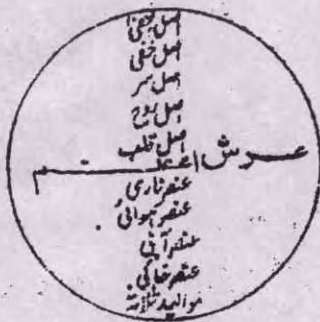 اصل اخفیٰ
اصل خفی
اصل سر
اصل روح
اصل قلب
عرش اعظم
عنصر ناری
عنصر ہوائی
عنصر آبی
عنصر خاکی
موالید ثلاثہ